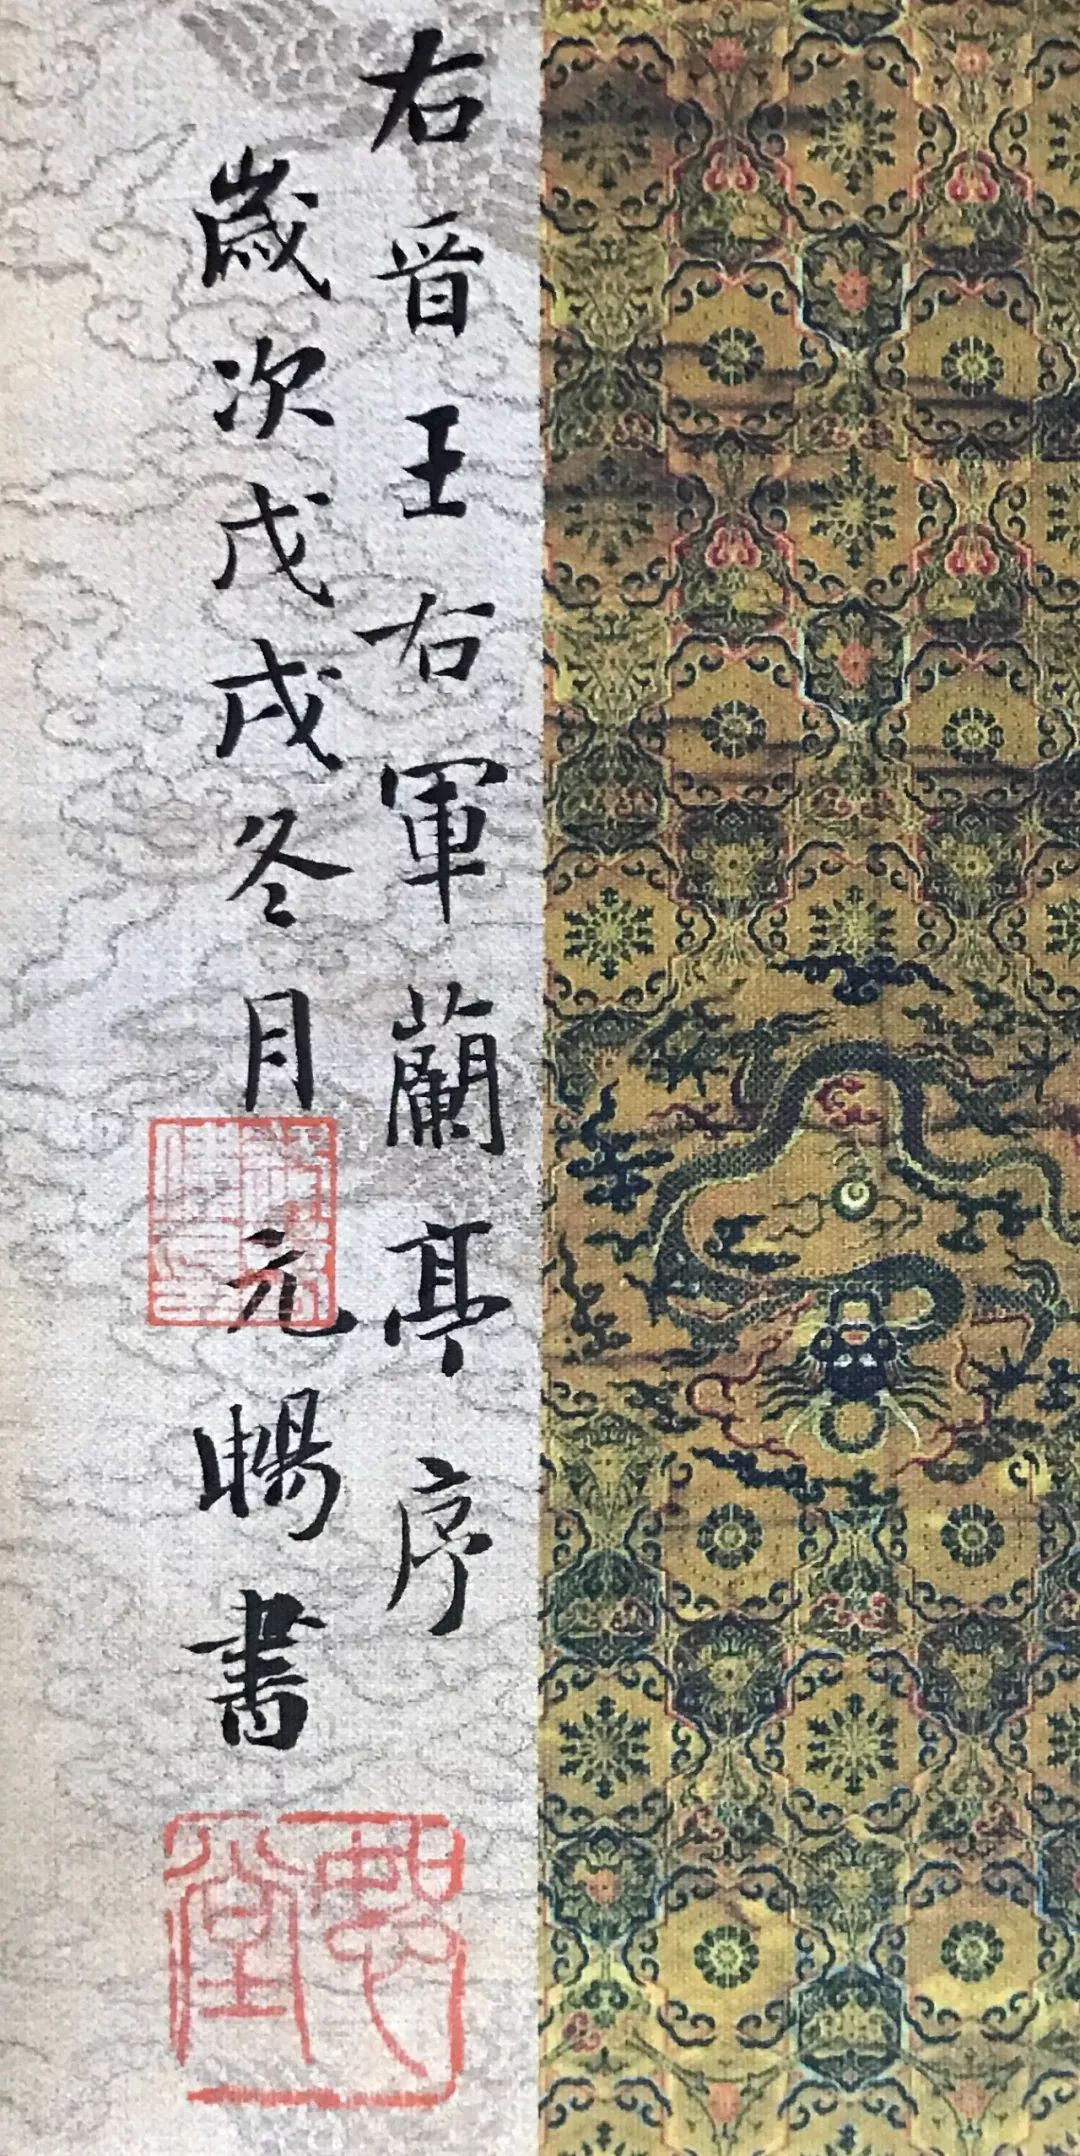 右晉王右軍蘭亭序
歲次戊戌冬月元暢書